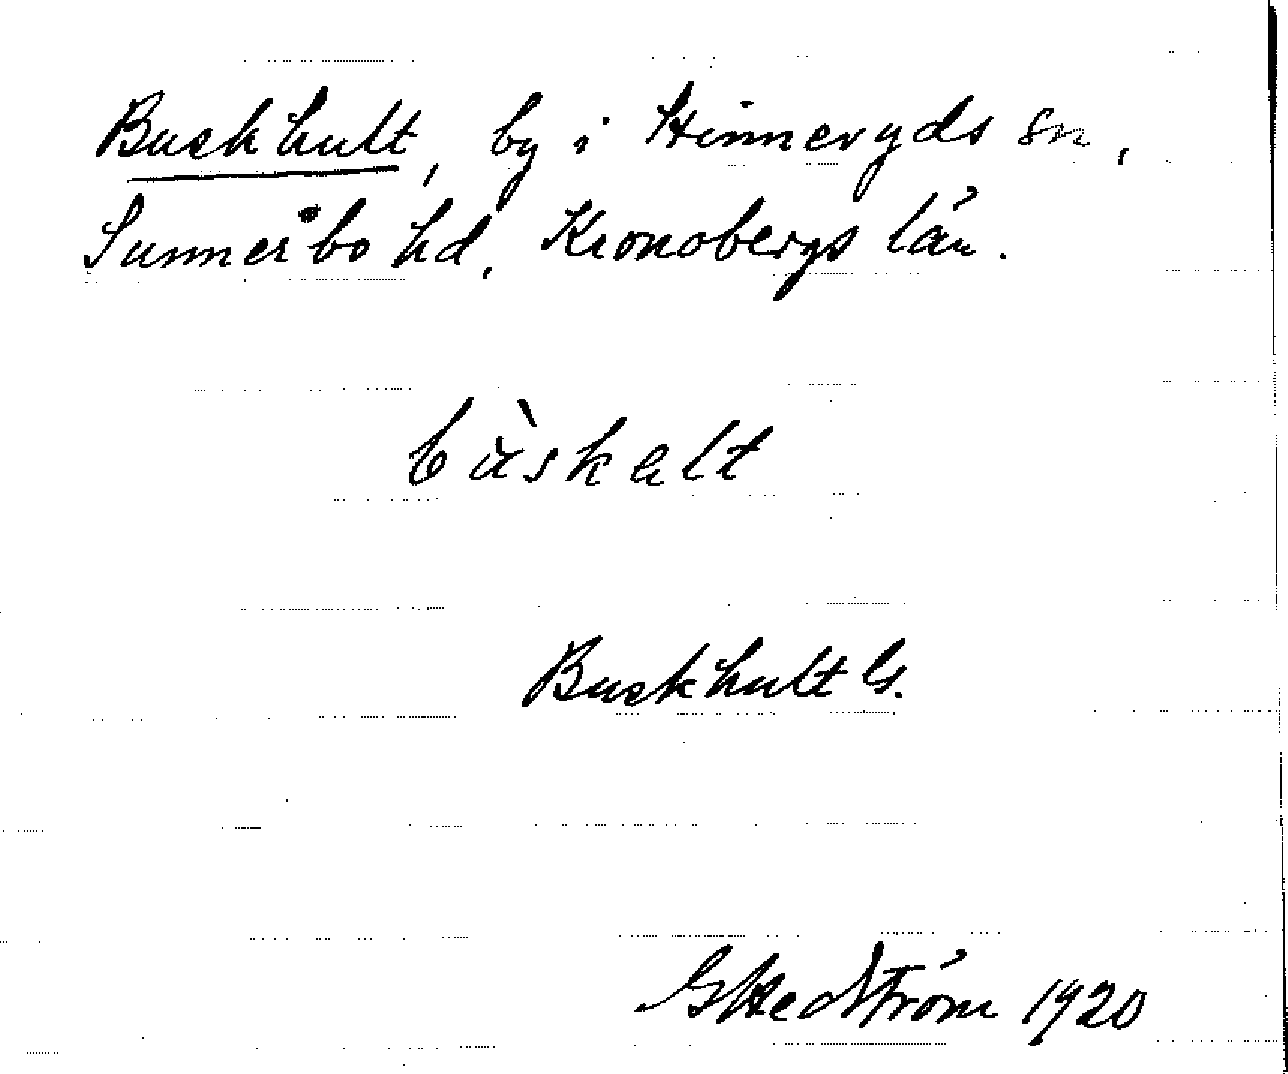 Buskhult, by i Hinneryds sn,
Sunnerbo hd, Kronobergs län.
bùskalt
Buskhult G.
G Hedström 1920